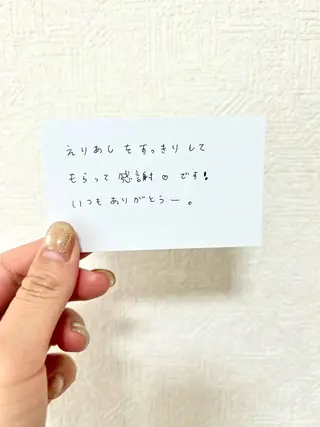 えりあしをすっきりして
もらって感謝♡です!
いつもありがとうー。